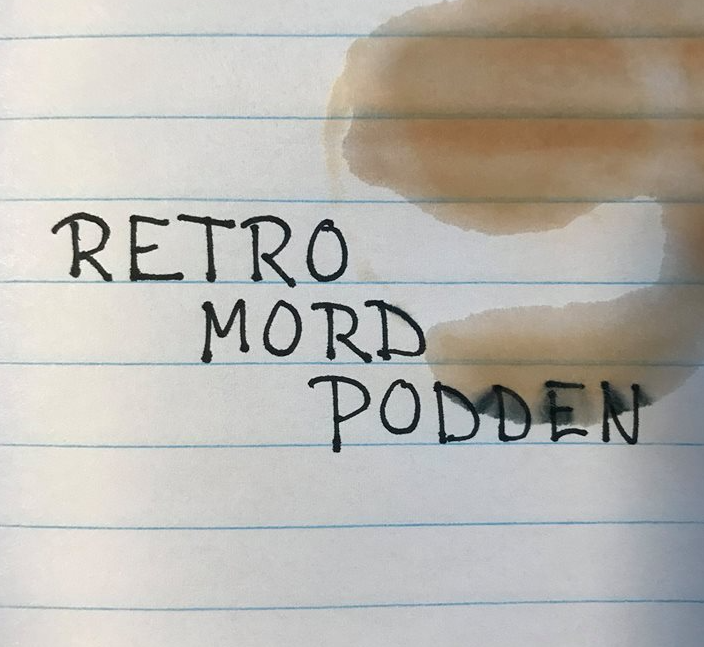 RETRO
MORD
PODDEN